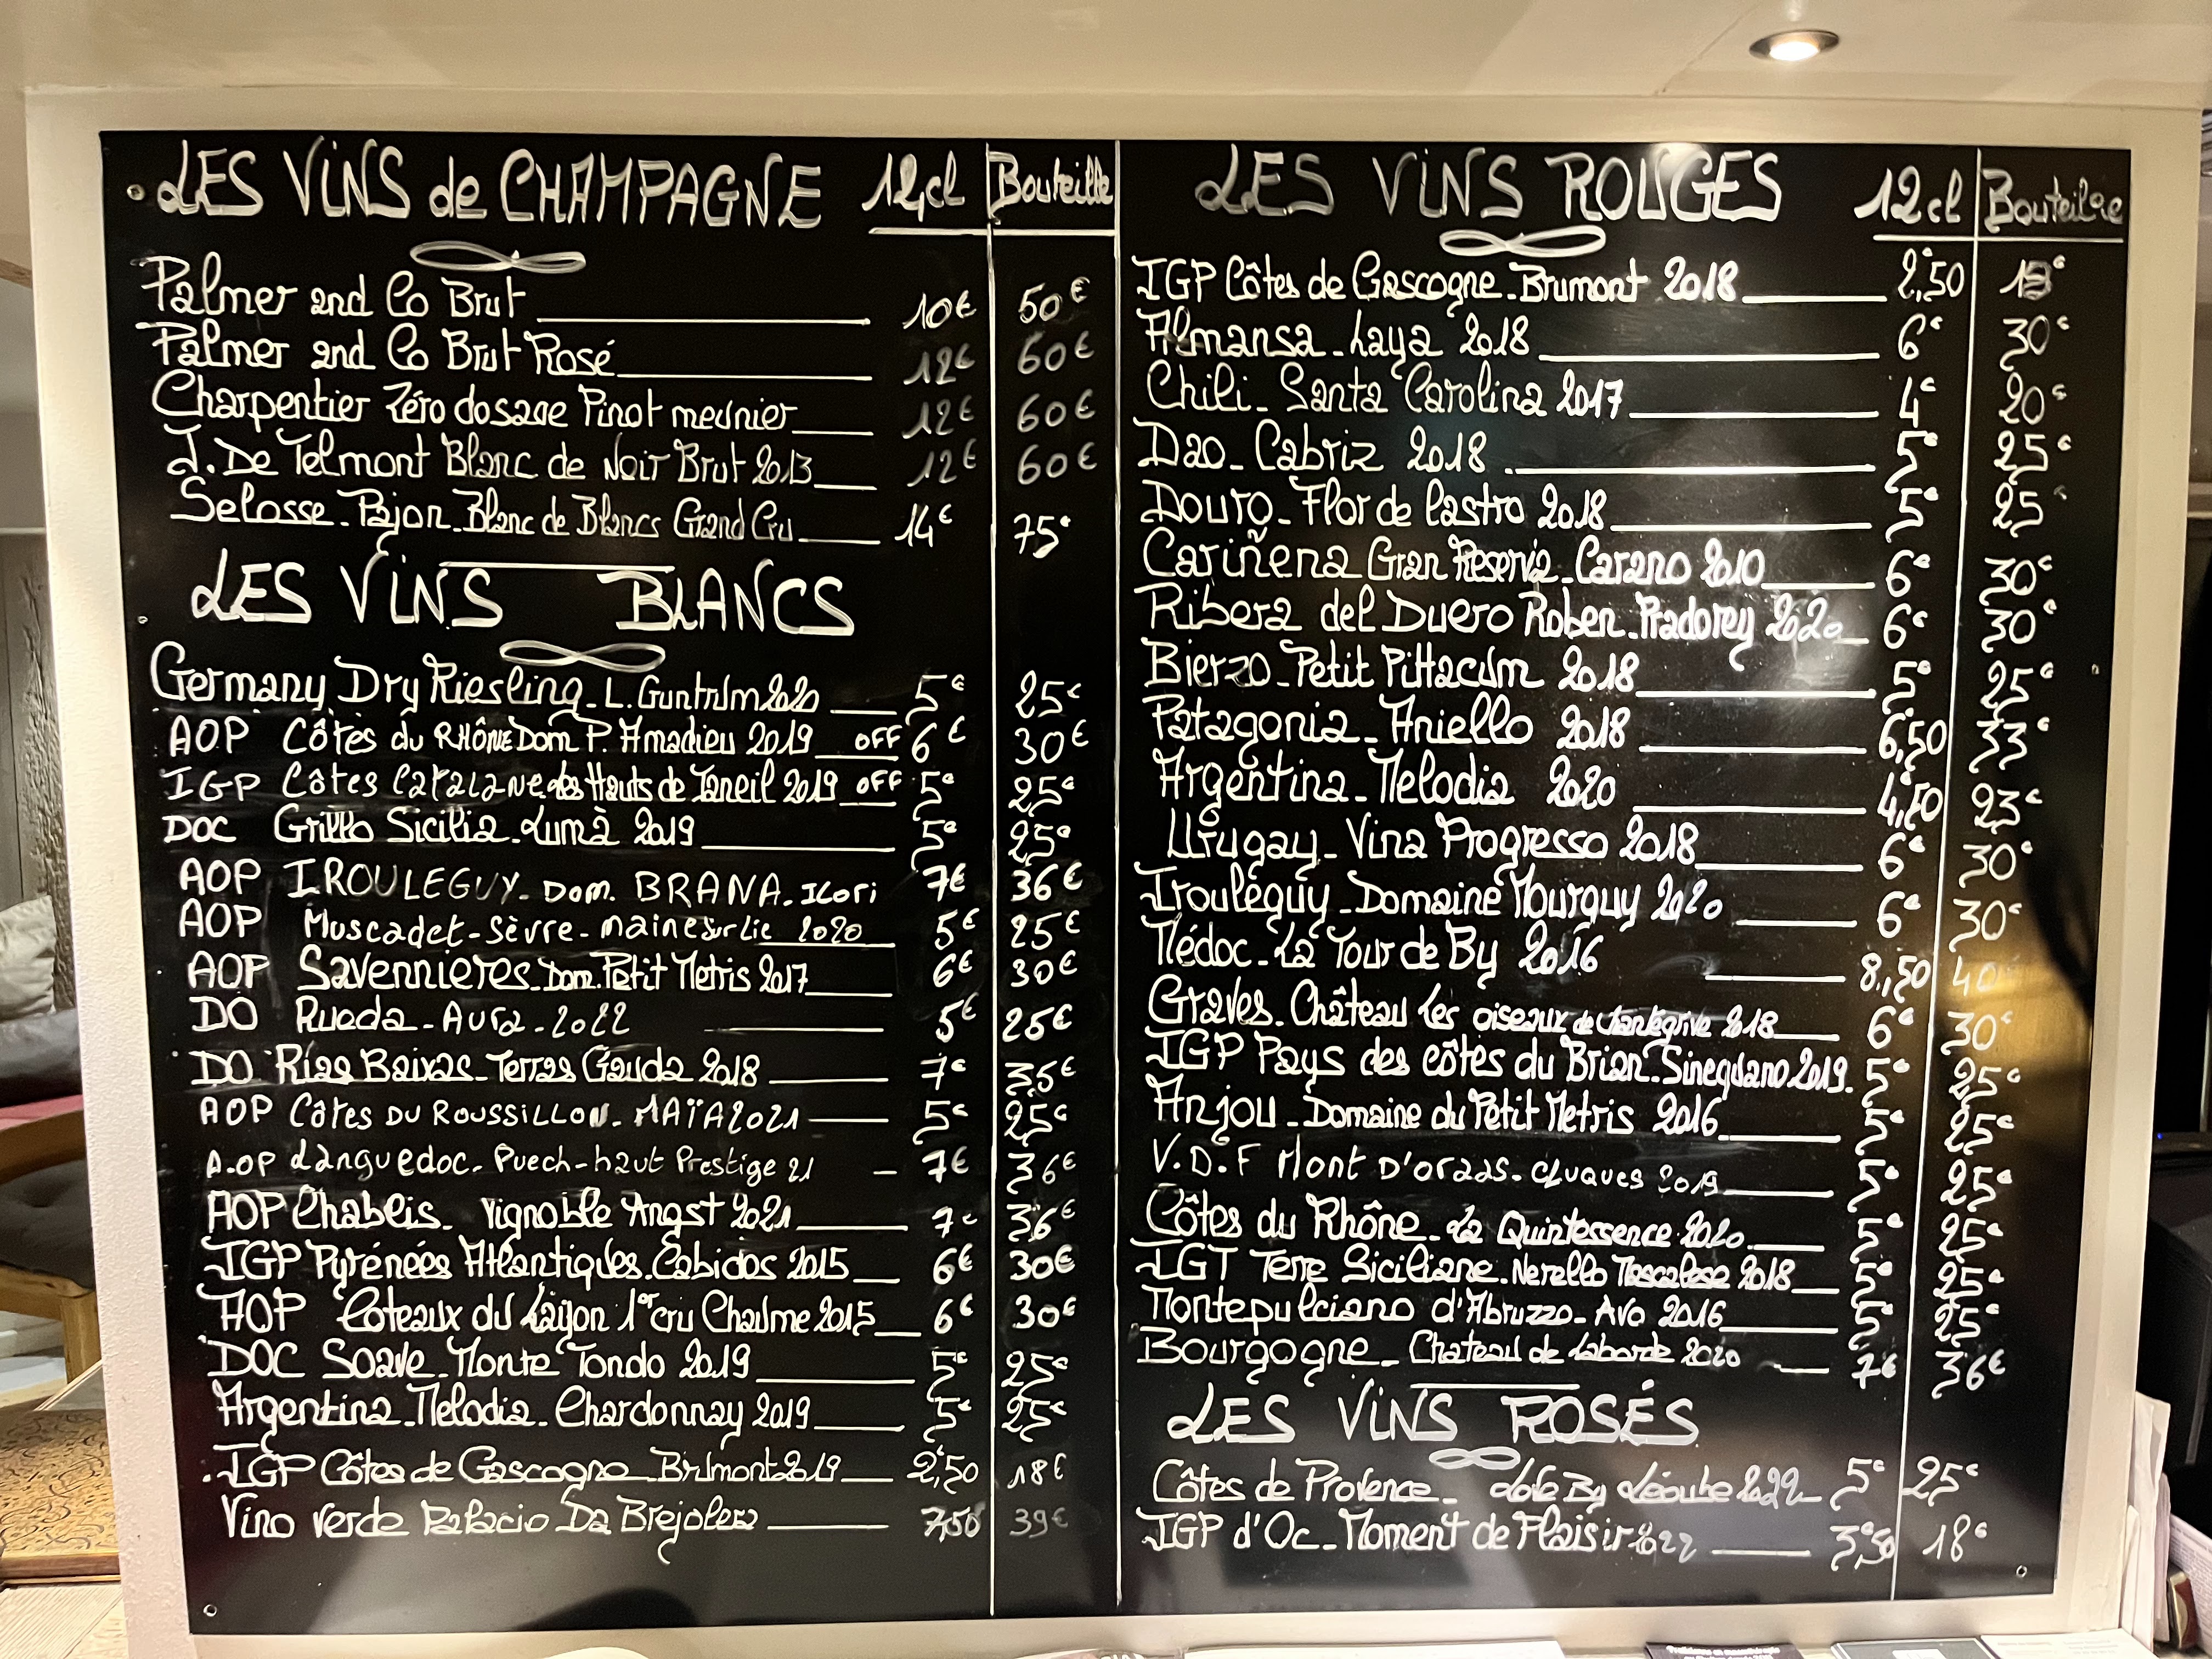 LES VINS de CHAMPAGNE 12cl Bouteille
Palmer and Co Brut 10€ 50€
Palmer and Co Brut Rosé 12€ 60€
Charpentier Zéro dosage Pinot meunier 12€ 60€
J. De Telmont Blanc de Noir Brut 2013 12€ 60€
Selosse-Pajon Blanc de Blancs Grand Cru 14€ 75€
LES VINS BLANCS
Germany Dry Riesling - L. Guntrum 2020 5€ 25€
AOP Côtes du RHÔNE Dom P. Amadieu 2019 OFF 6€ 30€
IGP Côtes CATALANE des Hauts de Janeil 2019 OFF 5€ 25€
DOC Grillo Sicilia - Lumà 2019 5€ 25€
AOP IROULEGUY - Dom. BRANA - Ilori 7€ 36€
AOP Muscadet-Sèvre-Maine sur Lie 2020 5€ 25€
AOP Savennieres - Dom. Petit Metris 2017 6€ 30€
DO Rueda - Aura - 2022 5€ 25€
DO Rías Baixas - Terras Gauda 2018 7€ 35€
AOP Côtes DU ROUSSILLON - MAÏA 2021 5€ 25€
A.OP Languedoc - Puech-haut Prestige 21 7€ 36€
AOP Chablis - Vignoble Angst 2021 7€ 36€
IGP Pyrénées Atlantiques - Cabidos 2015 6€ 30€
AOP Coteaux du Layon 1er cru Chaume 2015 6€ 30€
DOC Soave - Monte Tondo 2019 5€ 25€
Argentina - Melodia - Chardonnay 2019 5€ 25€
IGP Côtes de Gascogne Brumont 2019 2€,50 18€
Vino verde Palacio Da Brejolera 7,50 39€
LES VINS ROUGES 12cl Bouteille
IGP Côtes de Gascogne - Brumont 2018 2€,50
Almansa - Laya 2018 6€ 30€
Chili - Santa Carolina 2017 4€ 20€
Dao - Cabriz 2018 5€ 25€
Douro - Flor de Castro 2018 5€ 25€
Cariñena Gran Reserva - Carano 2010 6€ 30€
Ribera del Duero Roben - Pradorey 2020 6€ 30€
Bierzo - Petit Pittacum 2018 5€ 25€
Patagonia - Aniello 2018 6€,50 33€
Argentina - Melodia 2020 4€,50 23€
Urugay - Vina Progresso 2018 6€ 30€
Irouléguy - Domaine Mourguy 2020 6€ 30€
Médoc - La Tour de By 2016 8€,50 40€
Graves - Château Les oiseaux de chantegrive 2018 6€ 30€
IGP Pays des côtes du Brian - Sinequano 2019 5€ 25€
Anjou - Domaine du Petit Metris 2016 5€ 25€
V.D.F Mont D'oraas - Cluques 2019 5€ 25€
Côtes du Rhône - La Quintessence 2020 5€ 25€
IGT Terre Siciliane - Nerello Mascalese 2018 5€ 25€
Montepulciano d'Abruzzo - Avo 2016 5€ 25€
Bourgogne - Chateau de Laborde 2020 7€ 36€
LES VINS ROSÉS
Côtes de Provence - Love By Léoube 2022 5€ 25€
IGP d'Oc - Moment de Plaisir 2022 3€,50 18€